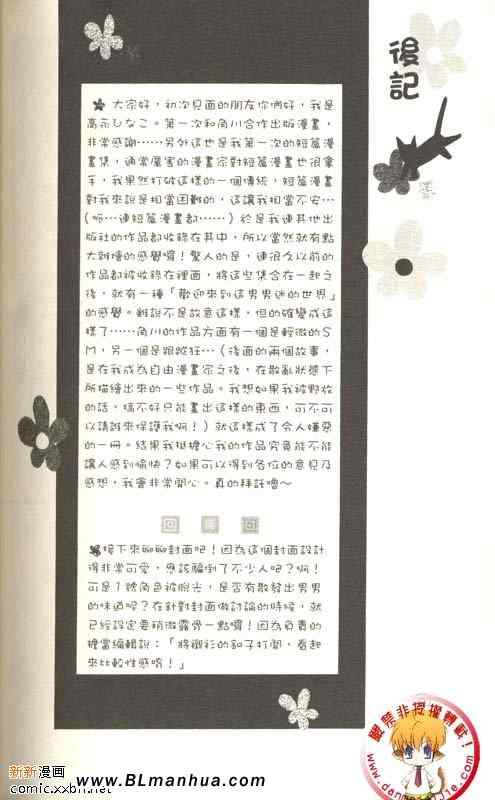 後記
大家好，初次見面的朋友你們好，我是
高永ひなこ。第一次和角川合作出版漫畫，
非常感謝……另外這也是我第一次的短篇漫
畫集，通常厲害的漫畫家對短篇漫畫也很拿
手，我果然打破這樣的一個傳統，短篇漫畫
對我來說是相當困難的，這讓我相當不安…
（呃…連短篇漫畫都……）於是我連其他出
版社的作品都收錄在其中，所以當然就有點
大雜燴的感覺囉！驚人的是，連很久以前的
作品都被收錄在裡面，將這些集合在一起之
後，就有一種「歡迎來到這男男迷的世界」
的感覺。雖說不是故意這樣，但的確變成這
樣了……角川的作品方面有一個是輕微的S
M，另一個是跟蹤狂…（後面的兩個故事，
是在我成為自由漫畫家之後，在散亂狀態下
所描繪出來的一些作品。我想如果我被野放
的話，搞不好只能畫出這樣的東西，可不可
以請誰來保護我啊！）就這樣成了令人嫌惡
的一冊。結果我挺擔心我的作品究竟能不能
讓人感到愉快？如果可以得到各位的意見及
感想，我會非常開心。真的拜託嚕～
接下來聊聊封面吧！因為這個封面設計
得非常可愛，應該騙倒了不少人吧？啊！
可是1號角色被脫光，是否有散發出男男
的味道呢？在針對封面做討論的時候，就
已經設定要稍微露骨一點囉！因為負責的
擔當編輯說：「將襯衫的釦子打開，看起
來比較性感唷！」
新新漫画
comic.xxbh.net
www.BLmanhua.com
嚴禁非授權轉載！